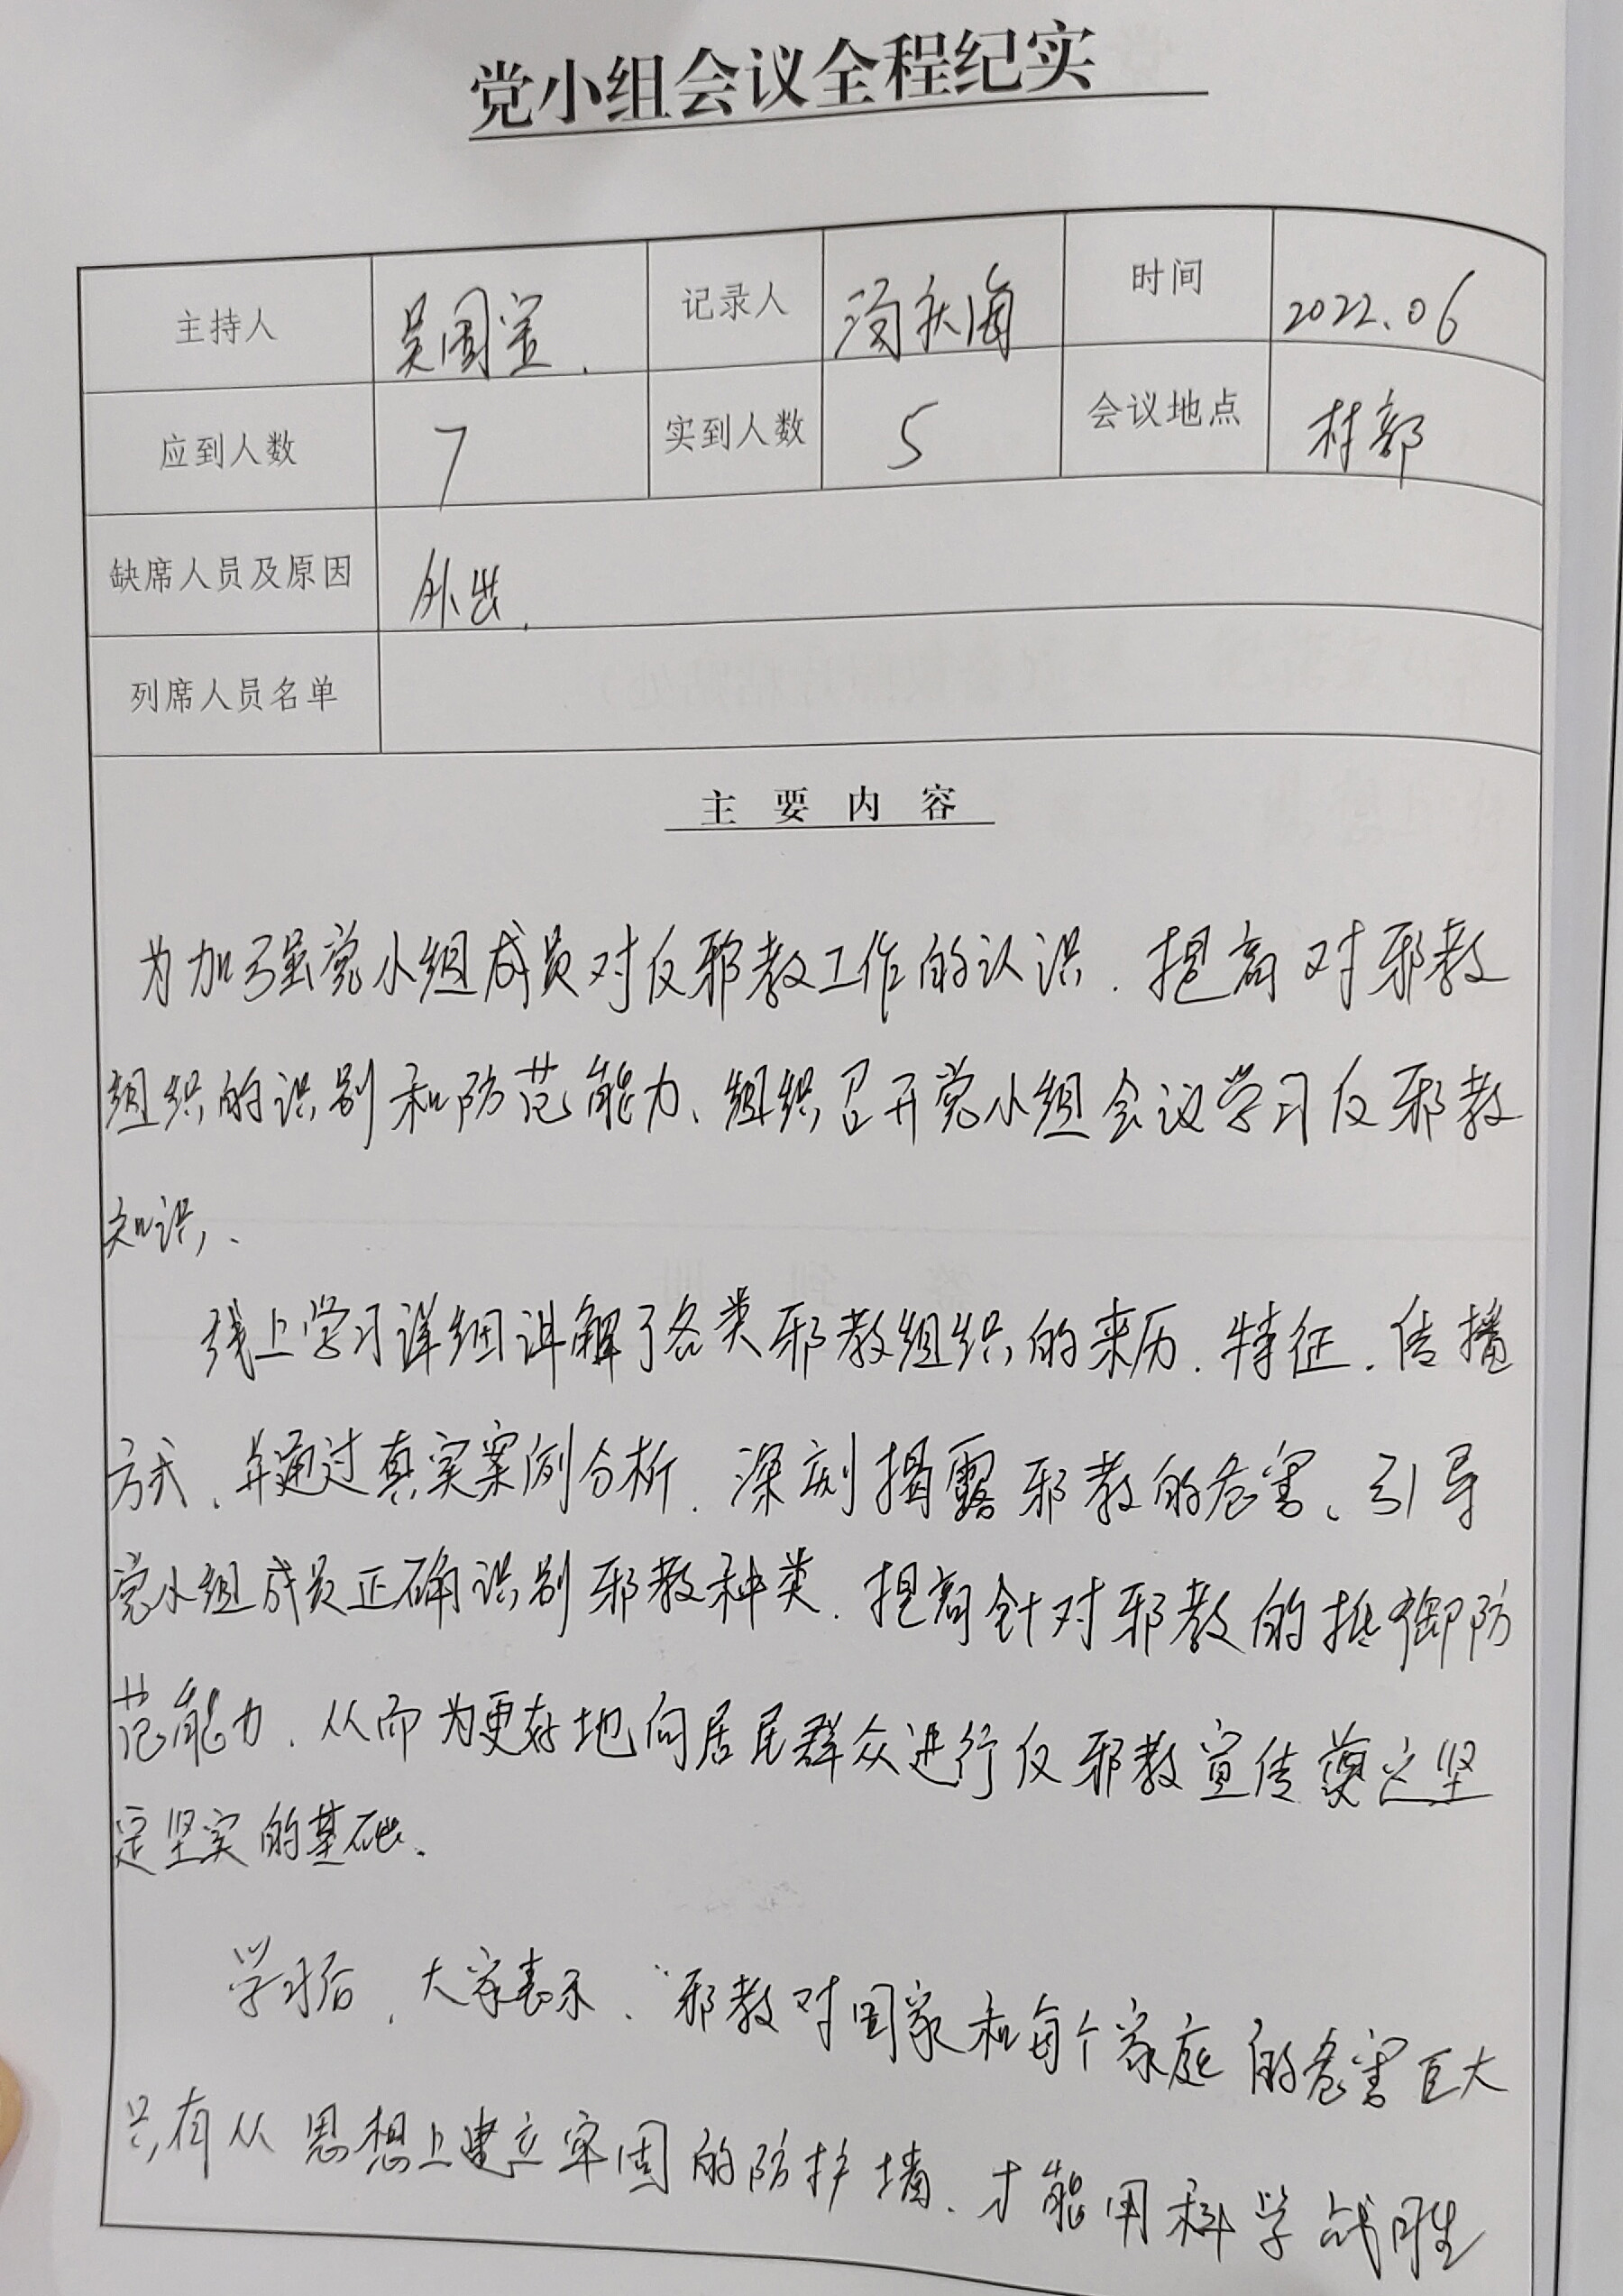 党小组会议全程纪实
主持人 吴国宣. 记录人 秋海 时间 2022.06
应到人数 7 实到人数 5 会议地点 村部
缺席人员及原因 外出.
列席人员名单
主要内容
为加强党小组成员对反邪教工作的认识.提高对邪教
组织的识别和防范能力、组织召开党小组会议学习反邪教
知识、
线上学习详细讲解了各类邪教组织的来历.特征.传播
方式、并通过真实案例分析.深刻揭露邪教的危害、引导
党小组成员正确识别邪教种类.提高针对邪教的抵御防
范能力.从而为更好地向居民群众进行反邪教宣传奠定坚
定坚实的基础.
学习后、大家表示、邪教对国家和每个家庭的危害巨大
只有从思想上建立牢固的防护墙、才能用科学战胜